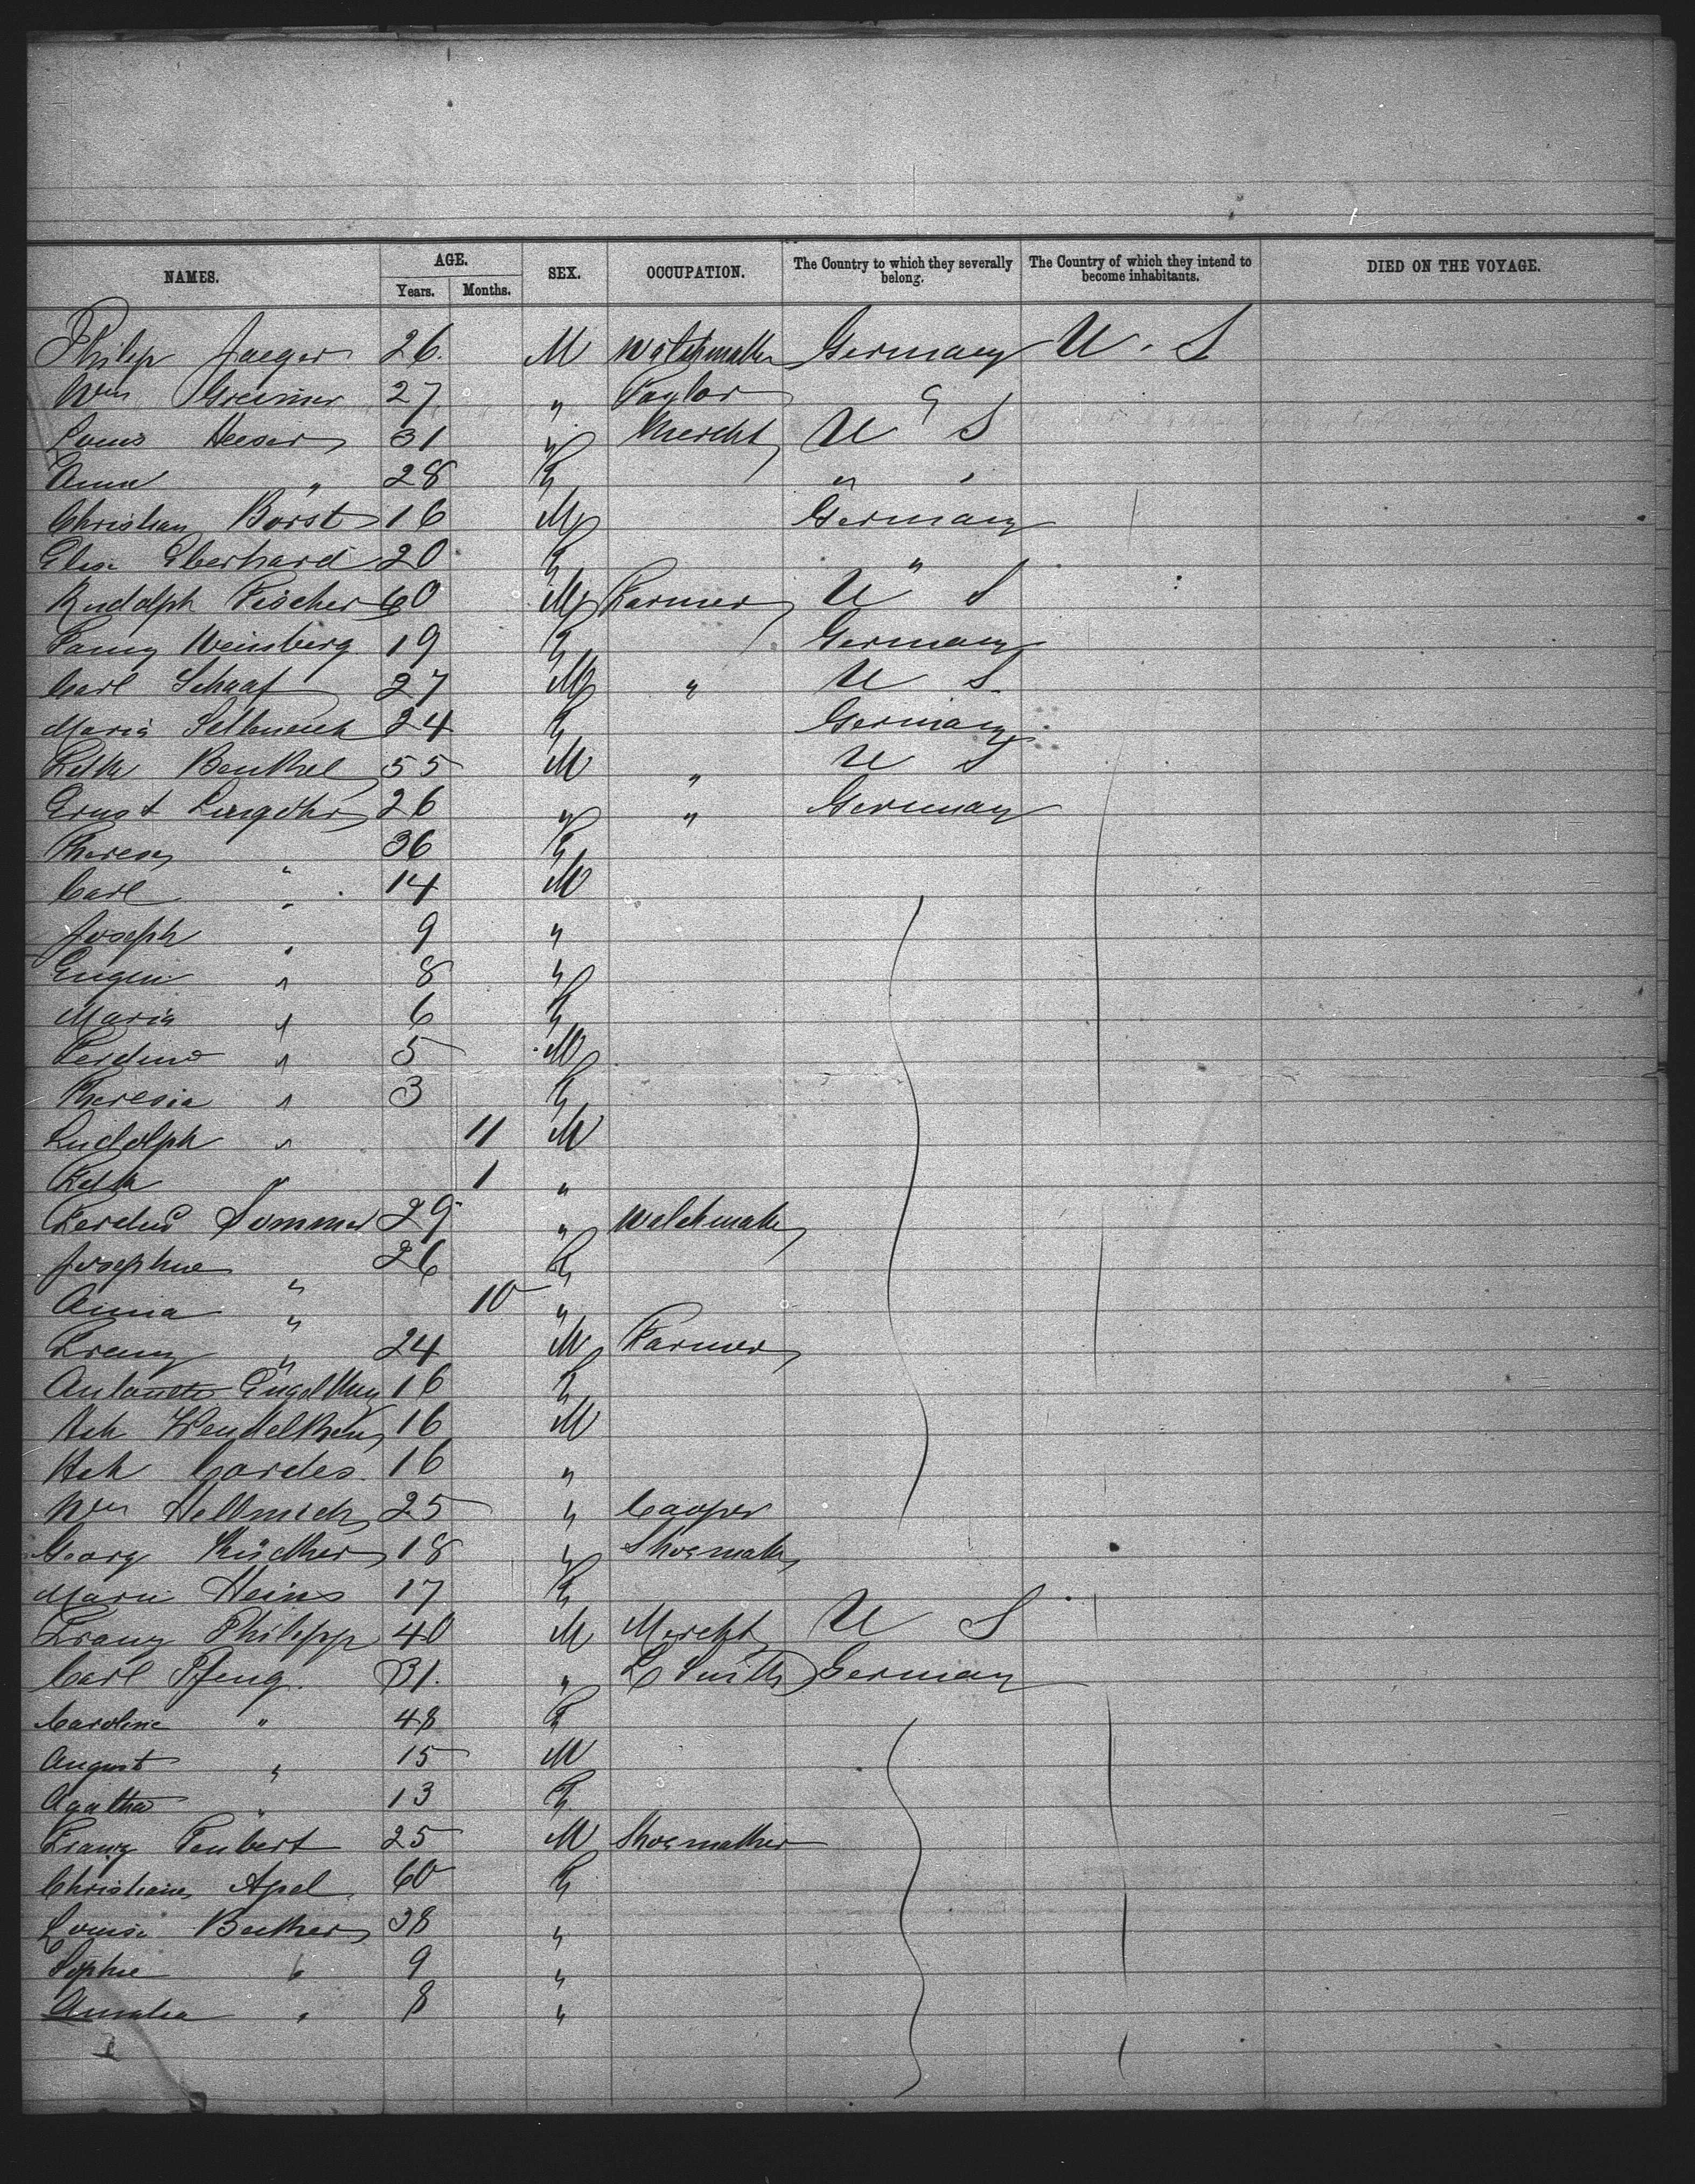 NAMES. AGE. SEX. OCCUPATION. The Country to which they severally belong. The Country of which they intend to become inhabitants. DIED ON THE VOYAGE.
Years. Months.
Philip Jaeger 26. M Watchmaker Germany U. S
Wm Greimer 27 " Taylor "
Louis Heeser 31 " Mercht U S
Anna " 28 F " "
Christian Borst 16 M Germany
Elise Eberhard 20 F "
Rudolph Fischer 60 M Farmer U S
Fanny Weinberg 19 F Germany
Carl Schaaf 27 M " U S
Maria 24 F Germany
55 M " U S
Ernst 26 " " Germany
Theresa " 36 F
Carl " 14 M
Joseph " 9 "
Eugen " 8 "
Maria " 6 F
Ferdind " 5 M
Theresia " 3 F
Ludolph " 11 M
" 1 "
Ferdind Sommer 29 " Watchmaker
Josephine " 26 F
Anna " 10 "
Franz " 24 M Farmer
16 F
Hch 16 M
Hch Cordes. 16 "
Wm Hellmich 25 " Cooper
Georg 18 " Shoemaker
Marie Heins 17 F
Franz Philipp 40 M Mercht U S
Carl Pfeng. 31. " L Smith German
Caroline " 48 F
August " 15 M
Agatha " 13 F
Franz Teubert 25 M Shoemaker
Christiane Apel 60 F
Louise 38 "
Sophie " 9 "
Amalia " 8 "